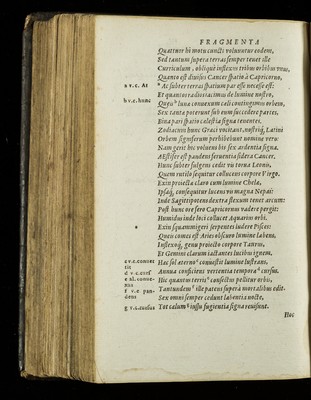 FRAGMENTA
Quattuor hi motu cuncti voluuntur eodem,
Sed tantum supera terras semper tenet ille
Curriculum, obliquè inflexus tribus orbibus vnus,
Quanto est diuisus Cancer spatio à Capricorno,
a v.c. At
Ac subter terras spatium par esse necesse est:
Et quantos radios iacimus de lumine nostro,
b v.c. hunc
Queis hunc conuexum caeli contingimus orbem,
Sex tanta poterunt sub eum succedere partes,
Bina pari spatio caelestia signa tenentes,
Zodiacum hunc Graeci vocitant, nostríq; Latini
Orbem signiferum perhibebunt nomine vero:
Nam gerit hic voluens bis sex ardentia signa.
Aestifer est pandens feruentia sidera Cancer,
Hunc subter fulgens cedit vis torua Leonis,
Quem rutilo sequitur collucens corpore Virgo.
Exin proiecta claro cum lumine Chelae,
Ipsáq; consequitur lucens vis magna Nepai:
Inde Sagittipotens dextra flexum tenet arcum:
Post hunc ore fero Capricornus vadere pergit:
Humidus inde loci collucet Aquarius orbi.
Exin squammigeri serpentes ludere Pisces:
Queis comes est Aries obscuro lumine labens,
Inflexóq; genu proiecto corpore Taurus,
Et Gemini clarum iactantes lucibus ignem,
Haec sol aeterno conuestit lumine lustrans,
Annua conficiens vertentia tempora cursu.
Hic quantus terris consectus pellitur orbis,
Tantundem ille patens supera mortalibus edit.
Sex omni semper cedunt labentia nocte,
g v.c. rursus
Tot caelum rursus fugientia signa reuisunt.
Hoc